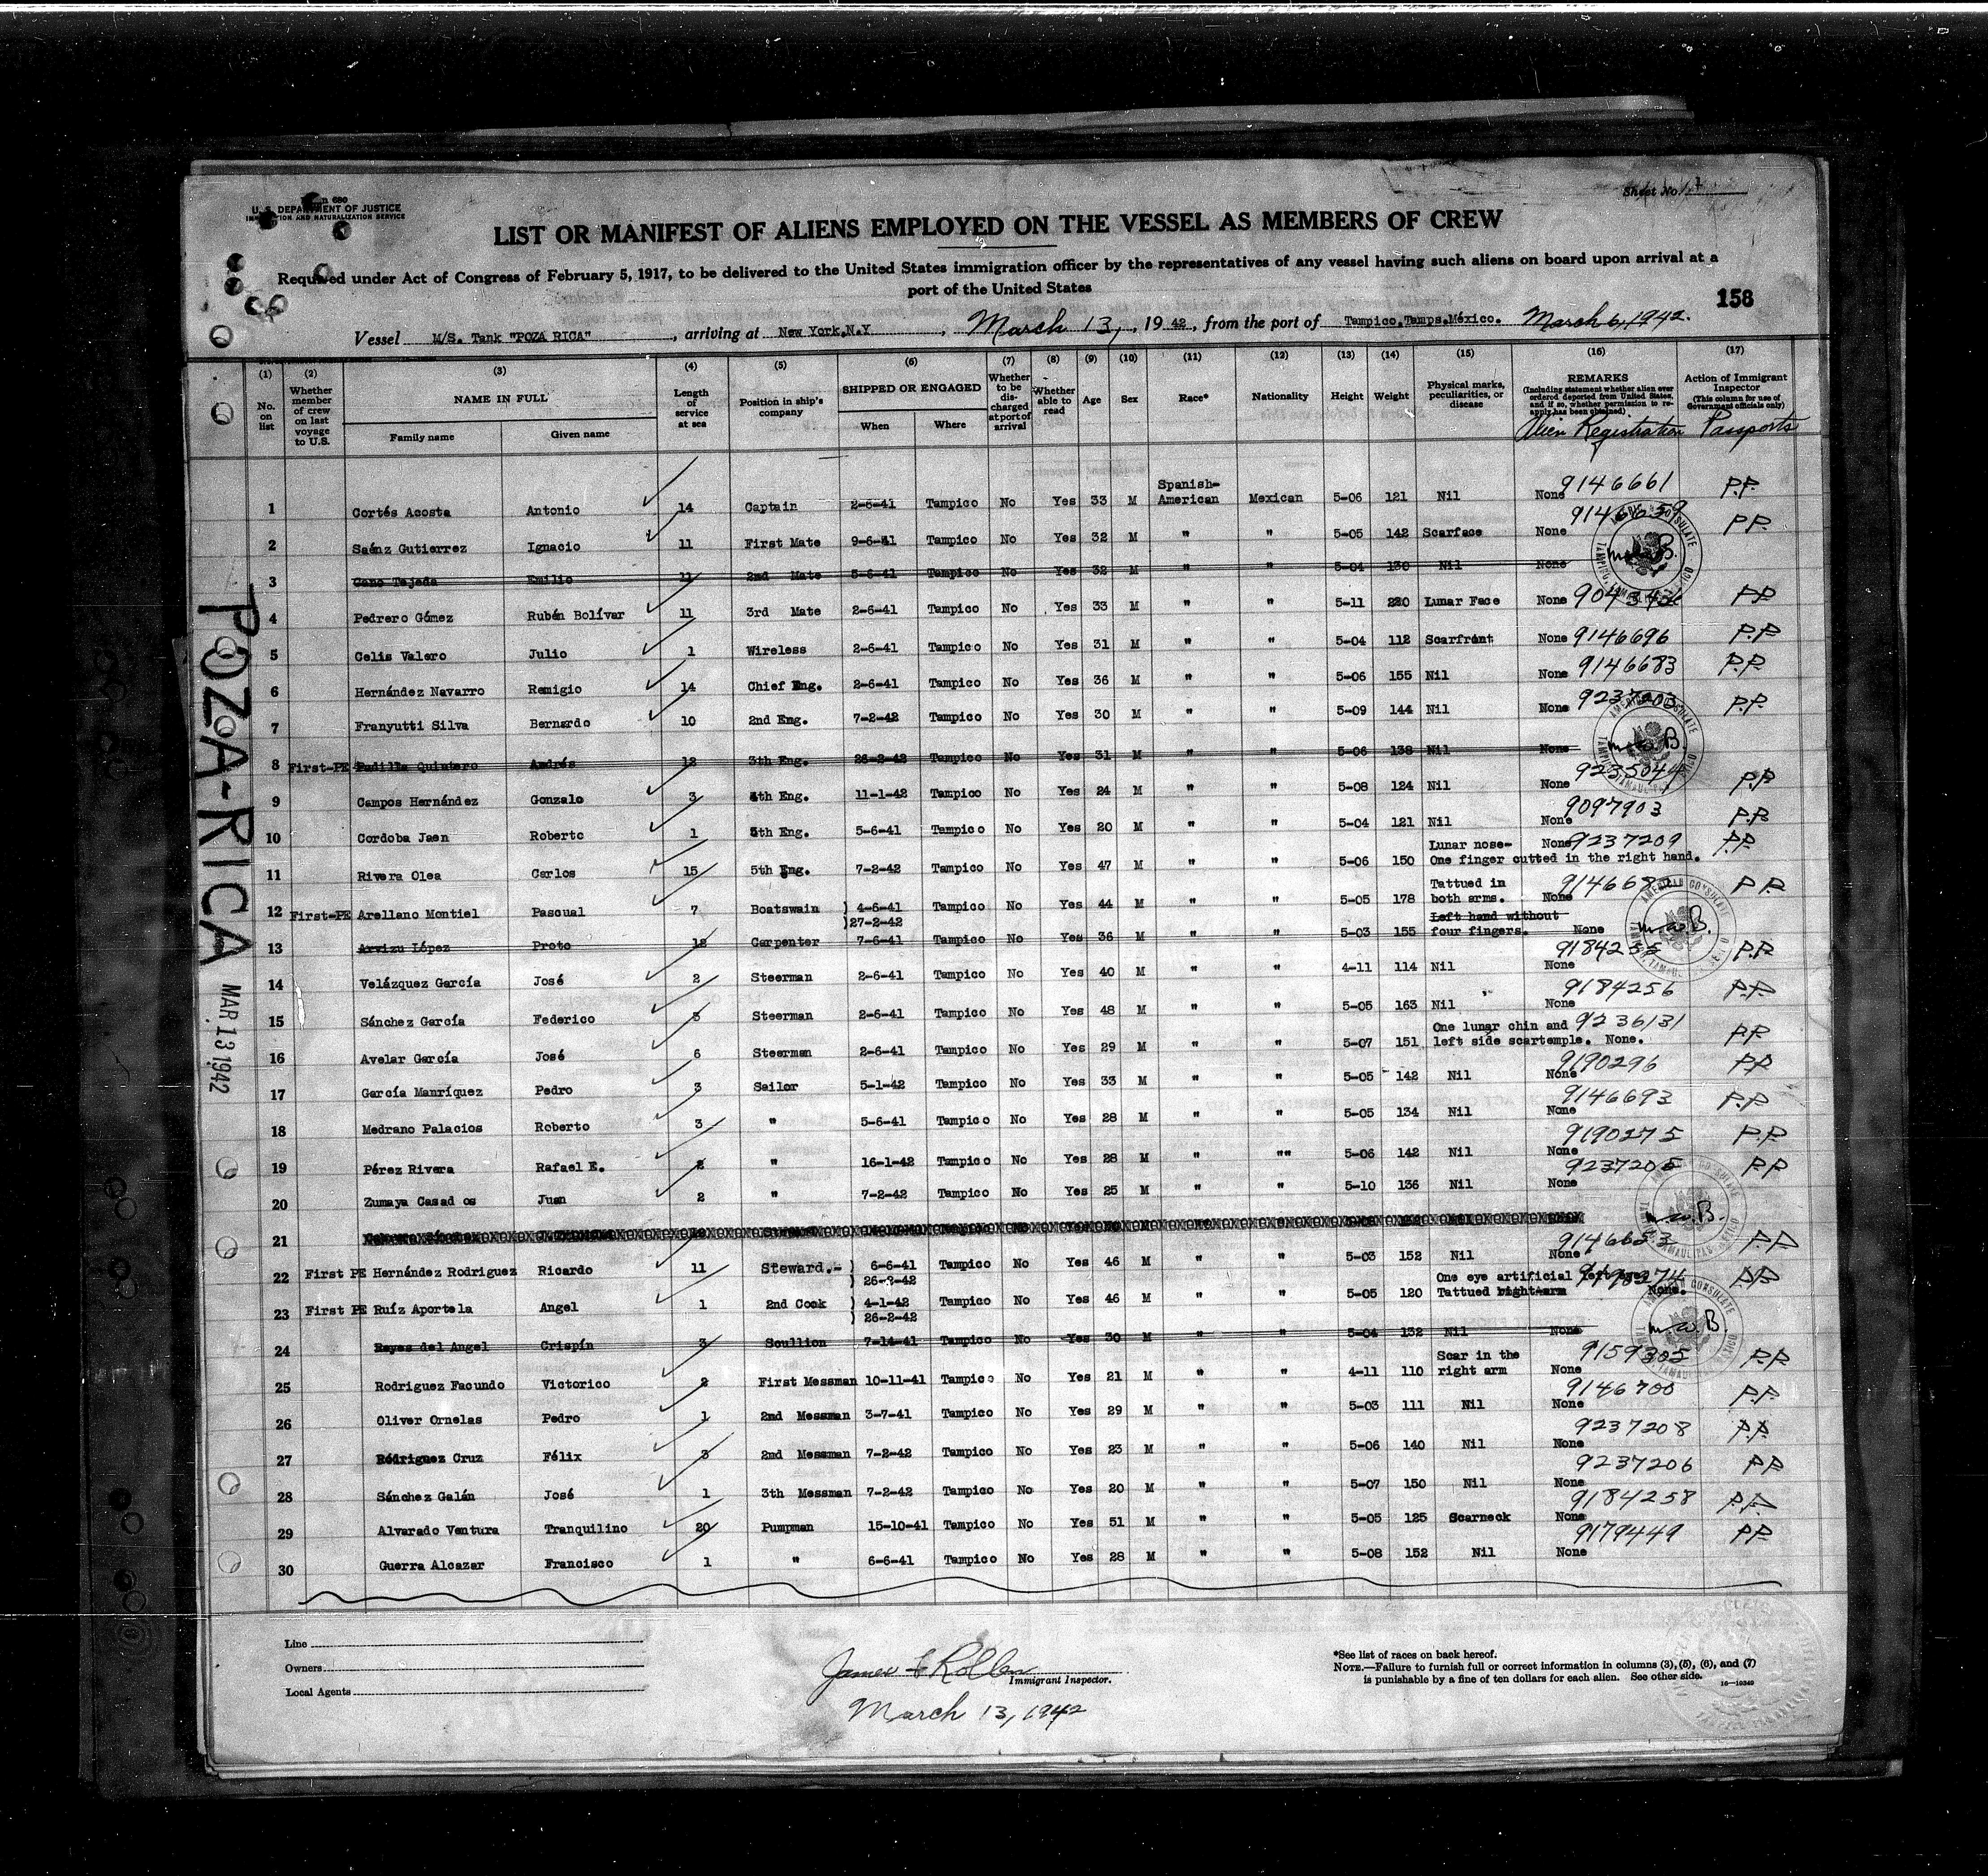 Sheet No. 1
Form 680
U. S. DEPARTMENT OF JUSTICE
IMMIGRATION AND NATURALIZATION SERVICE
LIST OR MANIFEST OF ALIENS EMPLOYED ON THE VESSEL AS MEMBERS OF CREW
Required under Act of Congress of February 5, 1917, to be delivered to the United States immigration officer by the representatives of any vessel having such aliens on board upon arrival at a
port of the United States
158
Vessel M/S. Tank "POZA RICA", arriving at New York,N.Y, March 13, 1942, from the port of Tampico,Tamps,México. March 6, 1942.
(1) No. on list (2) Whether member of crew on last voyage to U.S. (3) NAME IN FULL Family name Given name (4) Length of service at sea (5) Position in ship's company (6) SHIPPED OR ENGAGED When Where (7) Whether to be discharged at port of arrival (8) Whether able to read (9) Age (10) Sex (11) Race* (12) Nationality (13) Height (14) Weight (15) Physical marks, peculiarities, or disease (16) REMARKS (Including statement whether alien ever ordered deported from United States, and if so, whether permission to reapply has been obtained) Alien Registration (17) Action of Immigrant Inspector (This column for use of Government officials only) Passports
1 Cortés Acosta Antonio 14 Captain 2-6-41 Tampico No Yes 33 M Spanish-American Mexican 5-06 121 Nil None 9146661 P.P.
2 Saénz Gutierrez Ignacio 11 First Mate 9-6-41 Tampico No Yes 32 M " " 5-05 142 Scarface None 9146659 P.P.
3 Cano Tejeda Emilio 11 2nd Mate 5-6-41 Tampico No Yes 32 M " " 5-04 130 Nil None
4 Pedrero Gómez Rubén Bolívar 11 3rd Mate 2-6-41 Tampico No Yes 33 M " " 5-11 220 Lunar Face None P.P.
5 Celis Valero Julio 1 Wireless 2-6-41 Tampico No Yes 31 M " " 5-04 112 Scarfrant None 9146696 P.P.
6 Hernández Navarro Remigio 14 Chief Eng. 2-6-41 Tampico No Yes 36 M " " 5-06 155 Nil None 9146683 P.P.
7 Franyutti Silva Bernardo 10 2nd Eng. 7-2-42 Tampico No Yes 30 M " " 5-09 144 Nil None 9237203 P.P.
8 First-PE Padilla Quintero Andrés 12 3th Eng. 26-2-42 Tampico No Yes 31 M " " 5-06 138 Nil None
9 Campos Hernández Gonzalo 3 4th Eng. 11-1-42 Tampico No Yes 24 M " " 5-08 124 Nil None 9235044 P.P.
10 Cordoba Jaen Roberto 1 5th Eng. 5-6-41 Tampico No Yes 20 M " " 5-04 121 Nil None 9097903 P.P.
11 Rivera Olea Carlos 15 5th Eng. 7-2-42 Tampico No Yes 47 M " " 5-06 150 Lunar nose- One finger cutted in the right hand. None 9237209 P.P.
12 First-PE Arellano Montiel Pascual 7 Boatswain 4-6-41 27-2-42 Tampico No Yes 44 M " " 5-05 178 Tattued in both arms. None P.P.
13 Arvizu López Proto 12 Carpenter 7-6-41 Tampico No Yes 36 M " " 5-03 155 Left hand without four fingers. None
14 Velázquez García José 2 Steerman 2-6-41 Tampico No Yes 40 M " " 4-11 114 Nil None 9184255 P.P.
15 Sánchez García Federico 5 Steerman 2-6-41 Tampico No Yes 48 M " " 5-05 163 Nil None 9184256 P.P.
16 Avelar García José 6 Steerman 2-6-41 Tampico No Yes 29 M " " 5-07 151 One lunar chin and left side scartemple. None. 9236131 P.P.
17 García Manríquez Pedro 3 Sailor 5-1-42 Tampico No Yes 33 M " " 5-05 142 Nil None 9190296 P.P.
18 Medrano Palacios Roberto 3 " 5-6-41 Tampico No Yes 28 M " " 5-05 134 Nil None 9146693 P.P.
19 Pérez Rivera Rafael E. 2 " 16-1-42 Tampico No Yes 28 M " "" 5-06 142 Nil None 9190275 P.P.
20 Zumaya Casados Juan 2 " 7-2-42 Tampico No Yes 25 M " " 5-10 136 Nil None 9237205 P.P.
21
22 First PE Hernández Rodriguez Ricardo 11 Steward.- 6-6-41 26-2-42 Tampico No Yes 46 M " " 5-03 152 Nil None P.P.
23 First PE Ruíz Aportela Angel 1 2nd Cook 4-1-42 26-2-42 Tampico No Yes 46 M " " 5-05 120 One eye artificial Tattued right arm None. P.P.
24 Reyes del Angel Crispín 3 Scullion 7-14-41 Tampico No Yes 30 M " " 5-04 132 Nil None
25 Rodriguez Facundo Victorico 2 First Messman 10-11-41 Tampico No Yes 21 M " " 4-11 110 Scar in the right arm None 9159305 P.P.
26 Oliver Ornelas Pedro 1 2nd Messman 3-7-41 Tampico No Yes 29 M " " 5-03 111 Nil None 9146700 P.P.
27 Rodriguez Cruz Félix 3 2nd Messman 7-2-42 Tampico No Yes 23 M " " 5-06 140 Nil None 9237208 P.P.
28 Sánchez Galán José 1 3th Messman 7-2-42 Tampico No Yes 20 M " " 5-07 150 Nil None 9237206 P.P.
29 Alvarado Ventura Tranquilino 20 Pumpman 15-10-41 Tampico No Yes 51 M " " 5-05 125 Scarneck None 9184258 P.P.
30 Guerra Alcazar Francisco 1 " 6-6-41 Tampico No Yes 28 M " " 5-08 152 Nil None 9179449 P.P.
POZA-RICA
MAR 13 1942
AMERICAN CONSULATE
TAMPICO, TAMAULIPAS, MEXICO
Line
Owners
Local Agents
James
Immigrant Inspector.
March 13, 1942
*See list of races on back hereof.
NOTE.—Failure to furnish full or correct information in columns (3), (5), (6), and (7)
is punishable by a fine of ten dollars for each alien. See other side.
16—19349